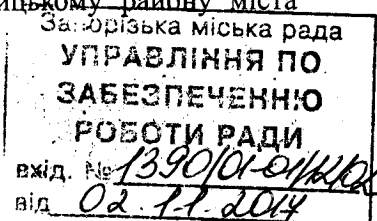 району міста
Запорізька міська рада
УПРАВЛІННЯ ПО
ЗАБЕЗПЕЧЕННЮ
РОБОТИ РАДИ
вхід. № 1390/01-01/12/02
від 02.11.2014